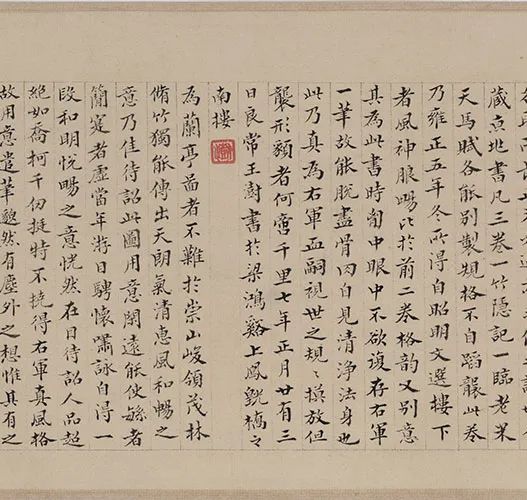 藏真地書凡三卷一竹隱記一臨老米
天馬賦各能別製規格不自蹈襲此卷
乃雍正五年冬所得自昭明文選樓下
者風神暢比於前二卷格韵又別意
其為此書時匈中眼中不欲復存右軍
一筆故能脫盡骨肉自見清淨法身也
此乃真為右軍血嗣視世之規〻摸放但
襲形貌者何啻千里七年正月廿有三
日良常王澍書於梁鴻谿上鳧橋之
南樓
為蘭亭圖者不難於崇山峻領茂林
脩竹獨能傳出天朗氣清惠風和暢之
意乃佳待詔此圖用意閑遠能使者
簡蹇者虛當年游目騁懷嘯詠自得一
段和明悅暢之意恍然在目待詔人品超
絕如喬柯千仞挺特不撓得右軍真風格
故用意遣筆邈然有塵外之想惟其有之